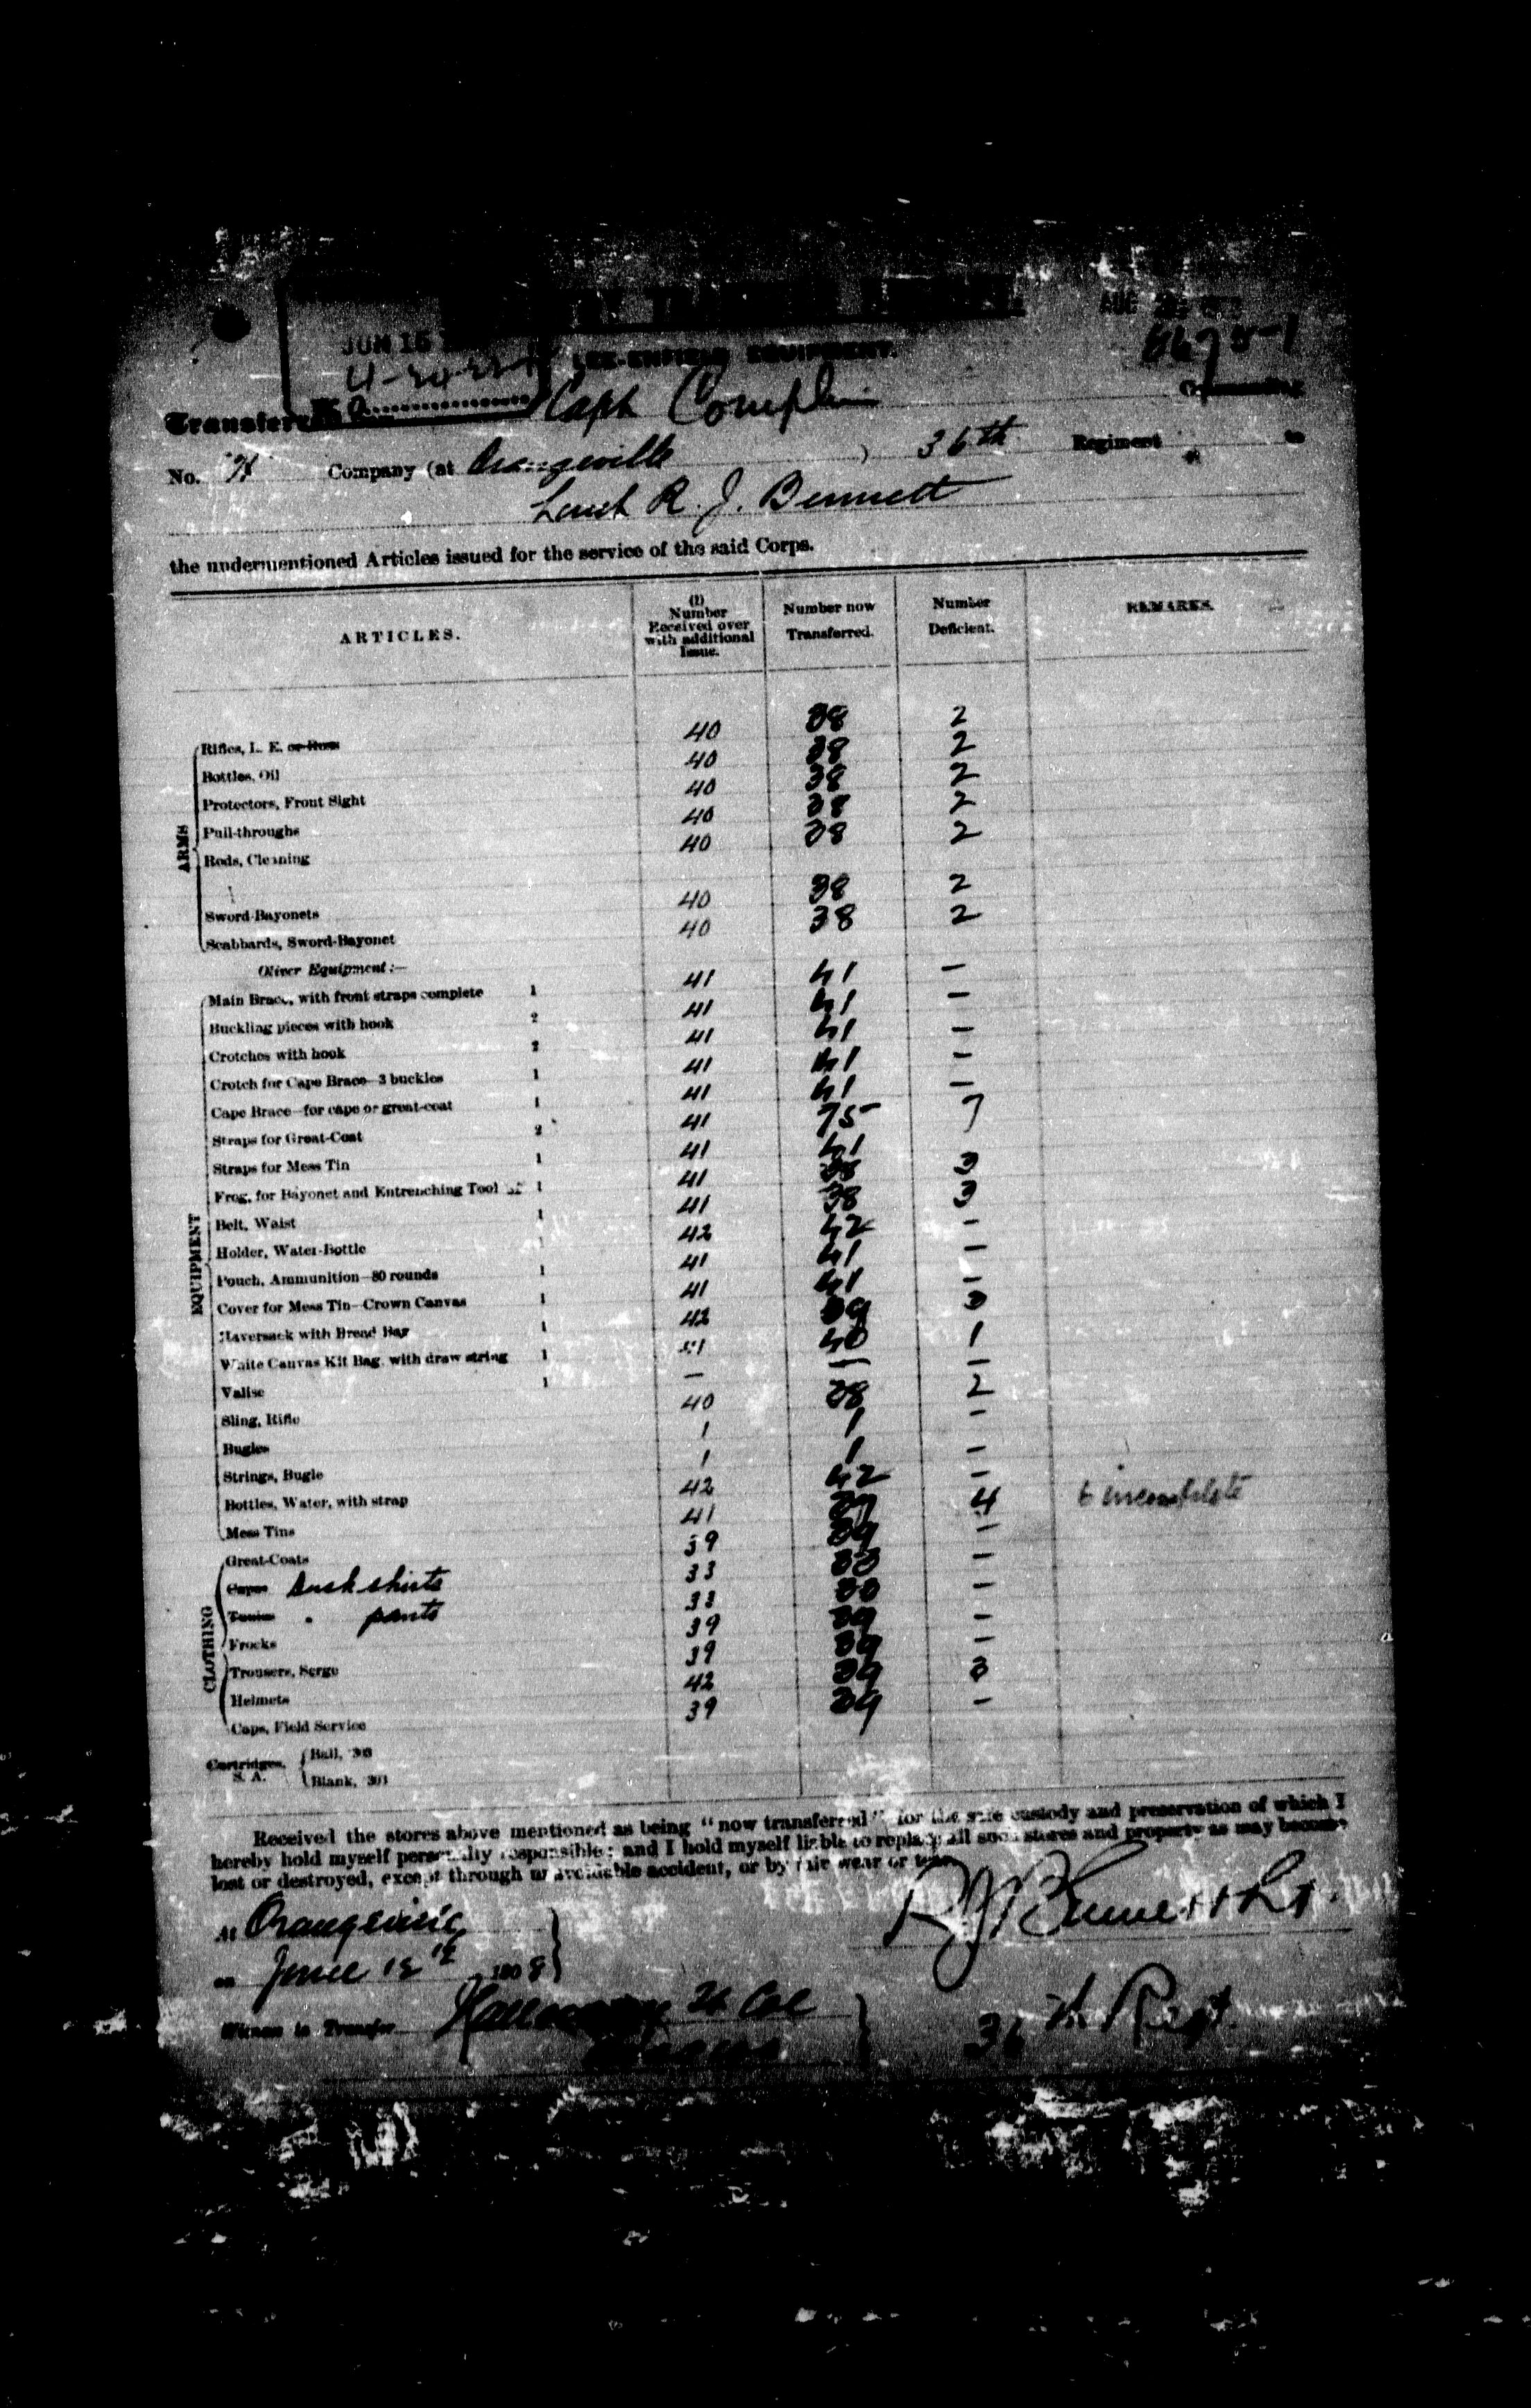 JUN 15
AUG
LEE-ENFIELD EQUIPMENT.
Capt Complin
Commanding
No. "H" Company (at Orangeville ) 36th Regiment to
Lieut R. J. Bennett
the undermentioned Articles issued for the service of the said Corps.
ARTICLES. (1) Number Received over with additional Issue. Number now Transferred. Number Deficient. REMARKS.
ARMS
Rifles, L. E. or Ross 40 38 2
Bottles, Oil 40 38 2
Protectors, Front Sight 40 38 2
Pull-throughs 40 38 2
Rods, Cleaning 40 38 2
Sword-Bayonets 40 38 2
Scabbards, Sword-Bayonet 40 38 2
Oliver Equipment:—
EQUIPMENT
Main Brace, with front straps complete 1 41 41 —
Buckling pieces with hook 2 41 41 —
Crotches with hook 2 41 41 —
Crotch for Cape Brace—3 buckles 1 41 41 —
Cape Brace—for cape or great-coat 1 41 41 —
Straps for Great-Coat 2 41 75 7
Straps for Mess Tin 1 41 41
Frog, for Bayonet and Entrenching Tool 1 41 38 3
Belt, Waist 1 41 38 3
Holder, Water-Bottle 42 42 —
Pouch, Ammunition—80 rounds 1 41 41 —
Cover for Mess Tin—Crown Canvas 1 41 41 —
Haversack with Bread Bag 1 42 39 3
White Canvas Kit Bag, with draw string 1 41 40 1
Valise 1 — — —
Sling, Rifle 40 38 2
Bugles 1 1 —
Strings, Bugle 1 1 —
Bottles, Water, with strap 42 42 —
Mess Tins 41 37 4 6 incomplete
CLOTHING
Great-Coats 39 39 —
Capes Duck shirts 33 33 —
Tunics " pants 33 33 —
Frocks 39 39 —
Trousers, Serge 39 39 —
Helmets 42 39 3
Caps, Field Service 39 39 —
Cartridges, S. A. Ball, 303
Blank, 303
Received the stores above mentioned as being "now transferred" for the safe custody and preservation of which I
hereby hold myself personally responsible; and I hold myself liable to replace all such stores and property as may become
lost or destroyed, except through unavoidable accident, or by fair wear or tear.
R J Bennett Lt.
At Orangeville
on June 12th 1908
Witness to Transfer Lt Col
36th Regt.